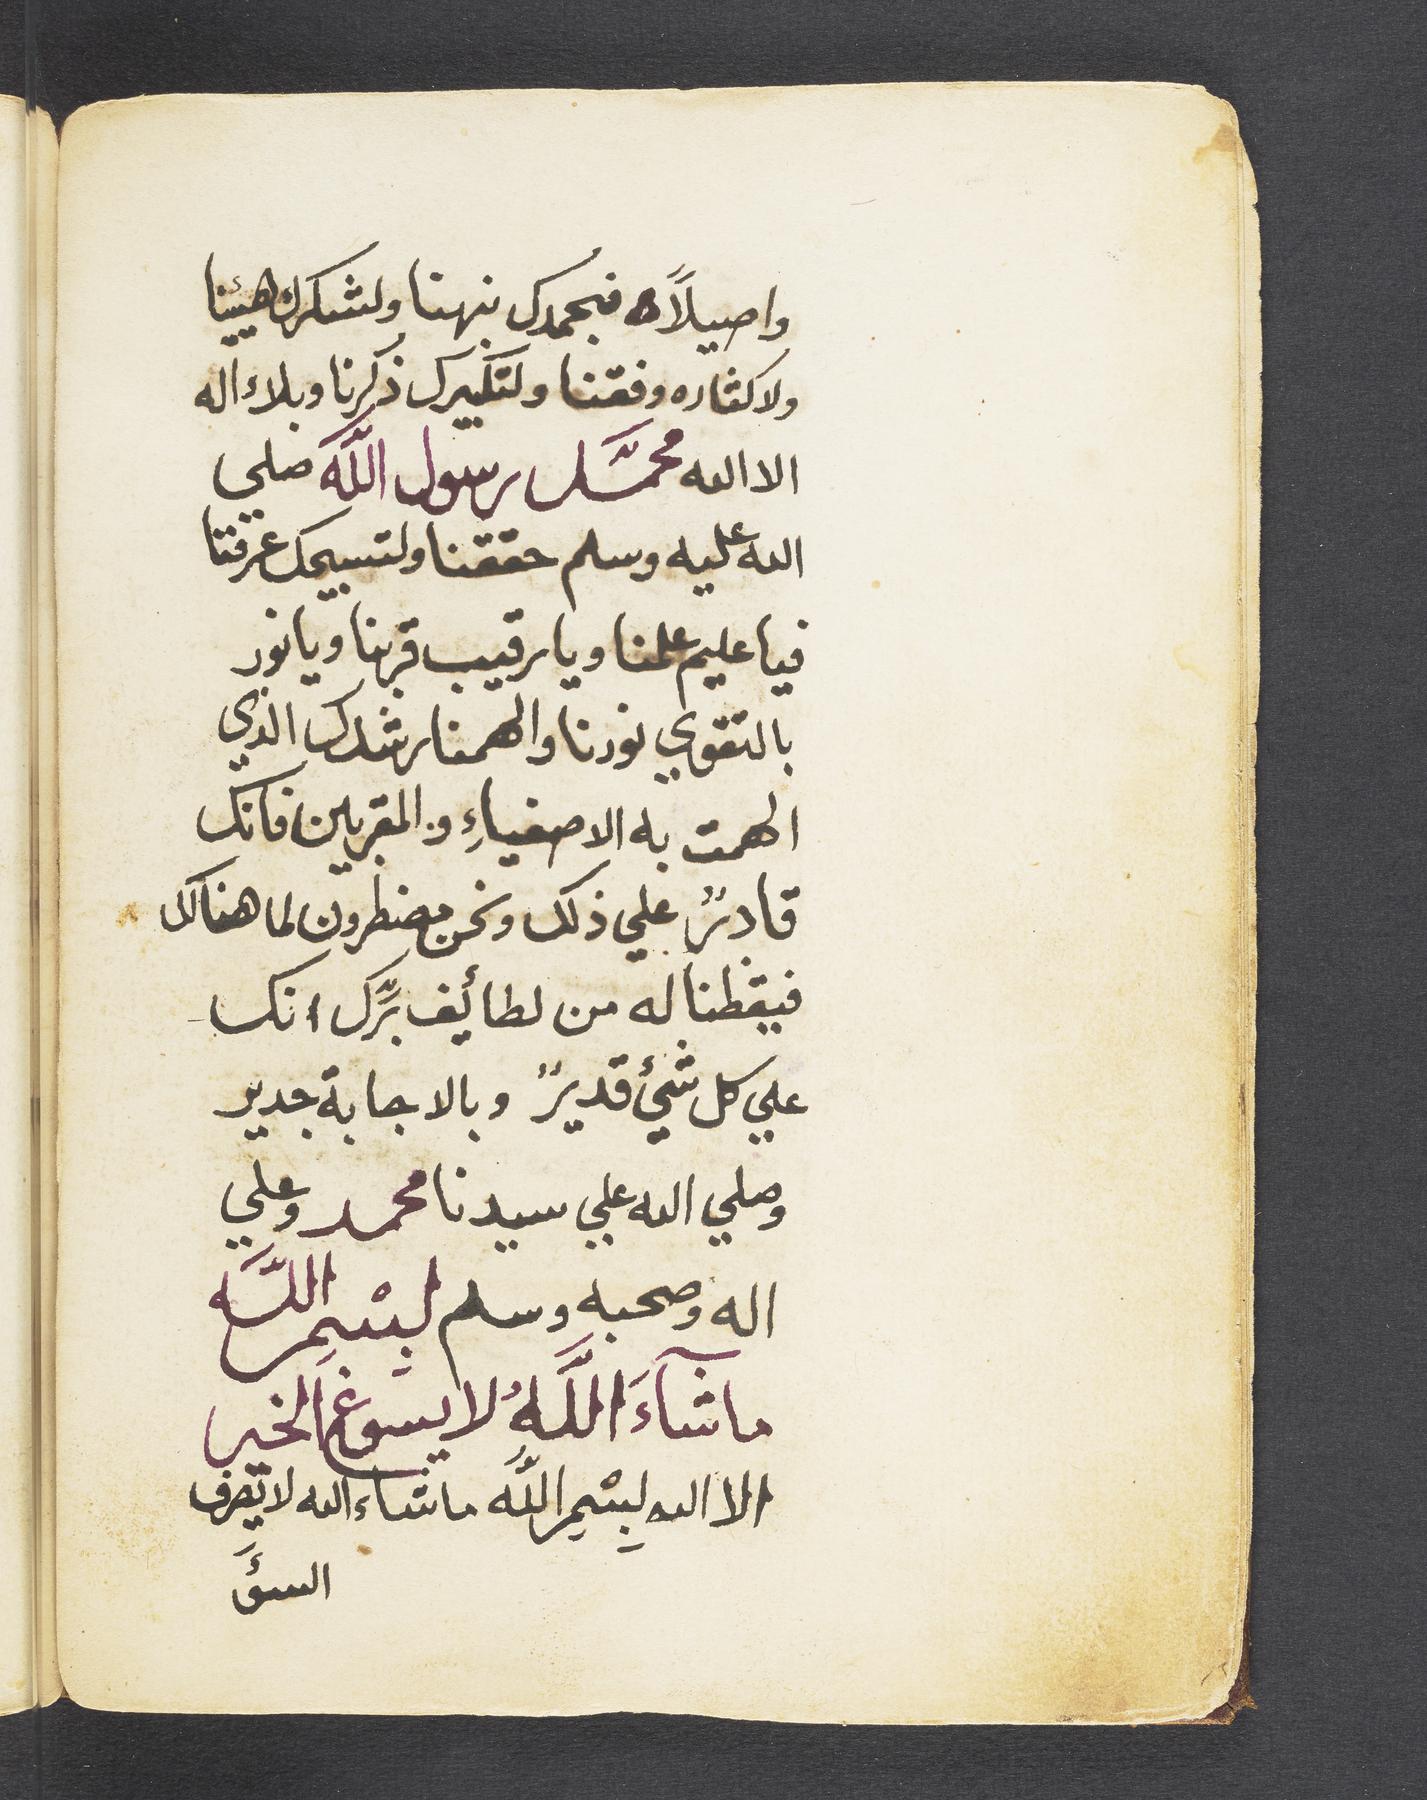 واصيلاً ه فبحمدك نبهنا ولشكرك هيئنا
ولاكثاره وفقنا ولتكبيرك ذكرنا وبلااله
الا الله محمَّد رسول اللَّه صلي
الله عليه وسلم حققنا ولتسبيحك عرفنا
فيا عليم علمنا ويا رقيب قربنا ويا نور
بالتقوي نورنا والهمنا رشدك الذي
الهمت به الاصفياءِ والمقربين فانك
قادرٌ علي ذلك ونحن مضطرون لما هنالك
فيقظنا له من لطائف برِّك انك
علي كل شئ قديرٌ وبالاجابة جدير
وصلي الله علي سيدنا محمد وعلي
اله وصحبه وسلم بِسْمِ اللَّه
ما شآءَ اللَّهُ لا يسوغ الخير
الا الله بِسْمِ اللَّه ما شاء الله لا يصرف
السؤَ